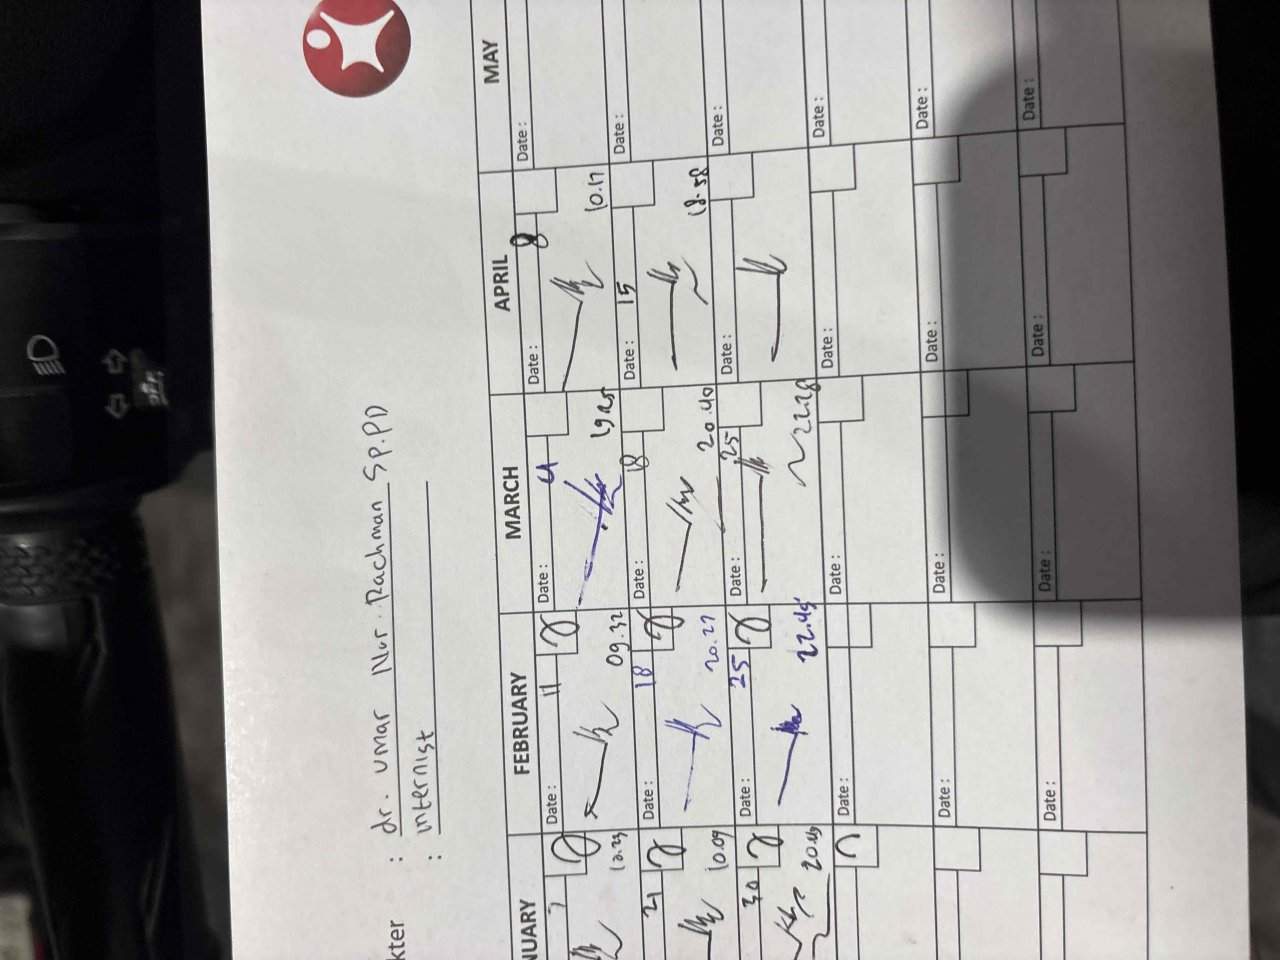 kter : dr. umar Nur. Rachman Sp.PD
: internist
NUARY FEBRUARY MARCH APRIL MAY
7 Date : 11 Date : 4 Date : 8 Date :
09.32 19.25 10.17
21 Date : 18 Date : 18 Date : 15 Date :
10.09 20.27 20.40 18.58
30 Date : 25 Date : 25 Date : Date :
20.43 22.45 22.28
Date : Date : Date : Date :
Date : Date : Date : Date :
Date : Date : Date : Date :